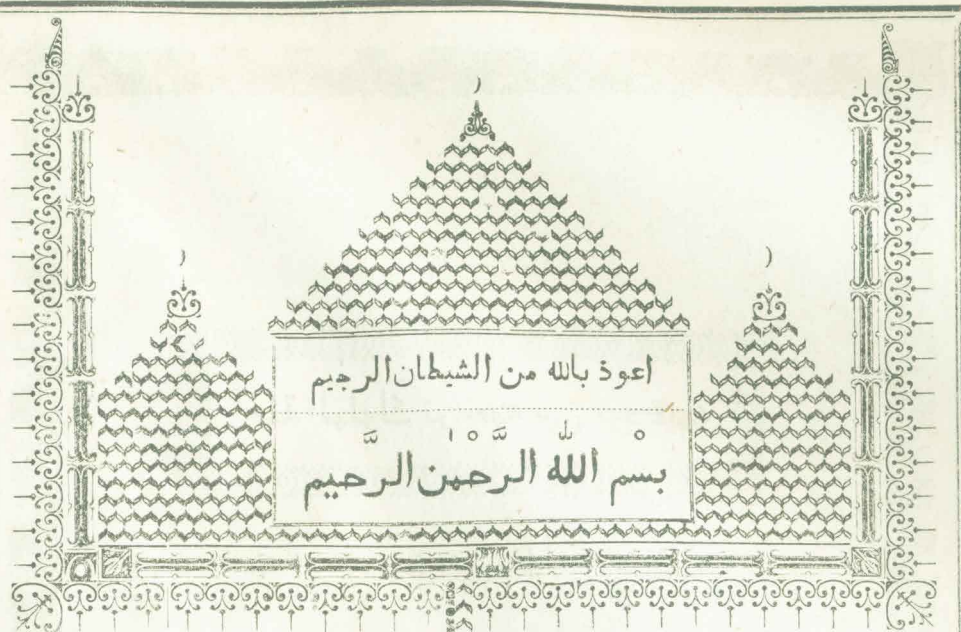 اعوذ بالله من الشيطان الرجيم
بسْم اللّٰه الرَّحْمٰن الرَّحيم